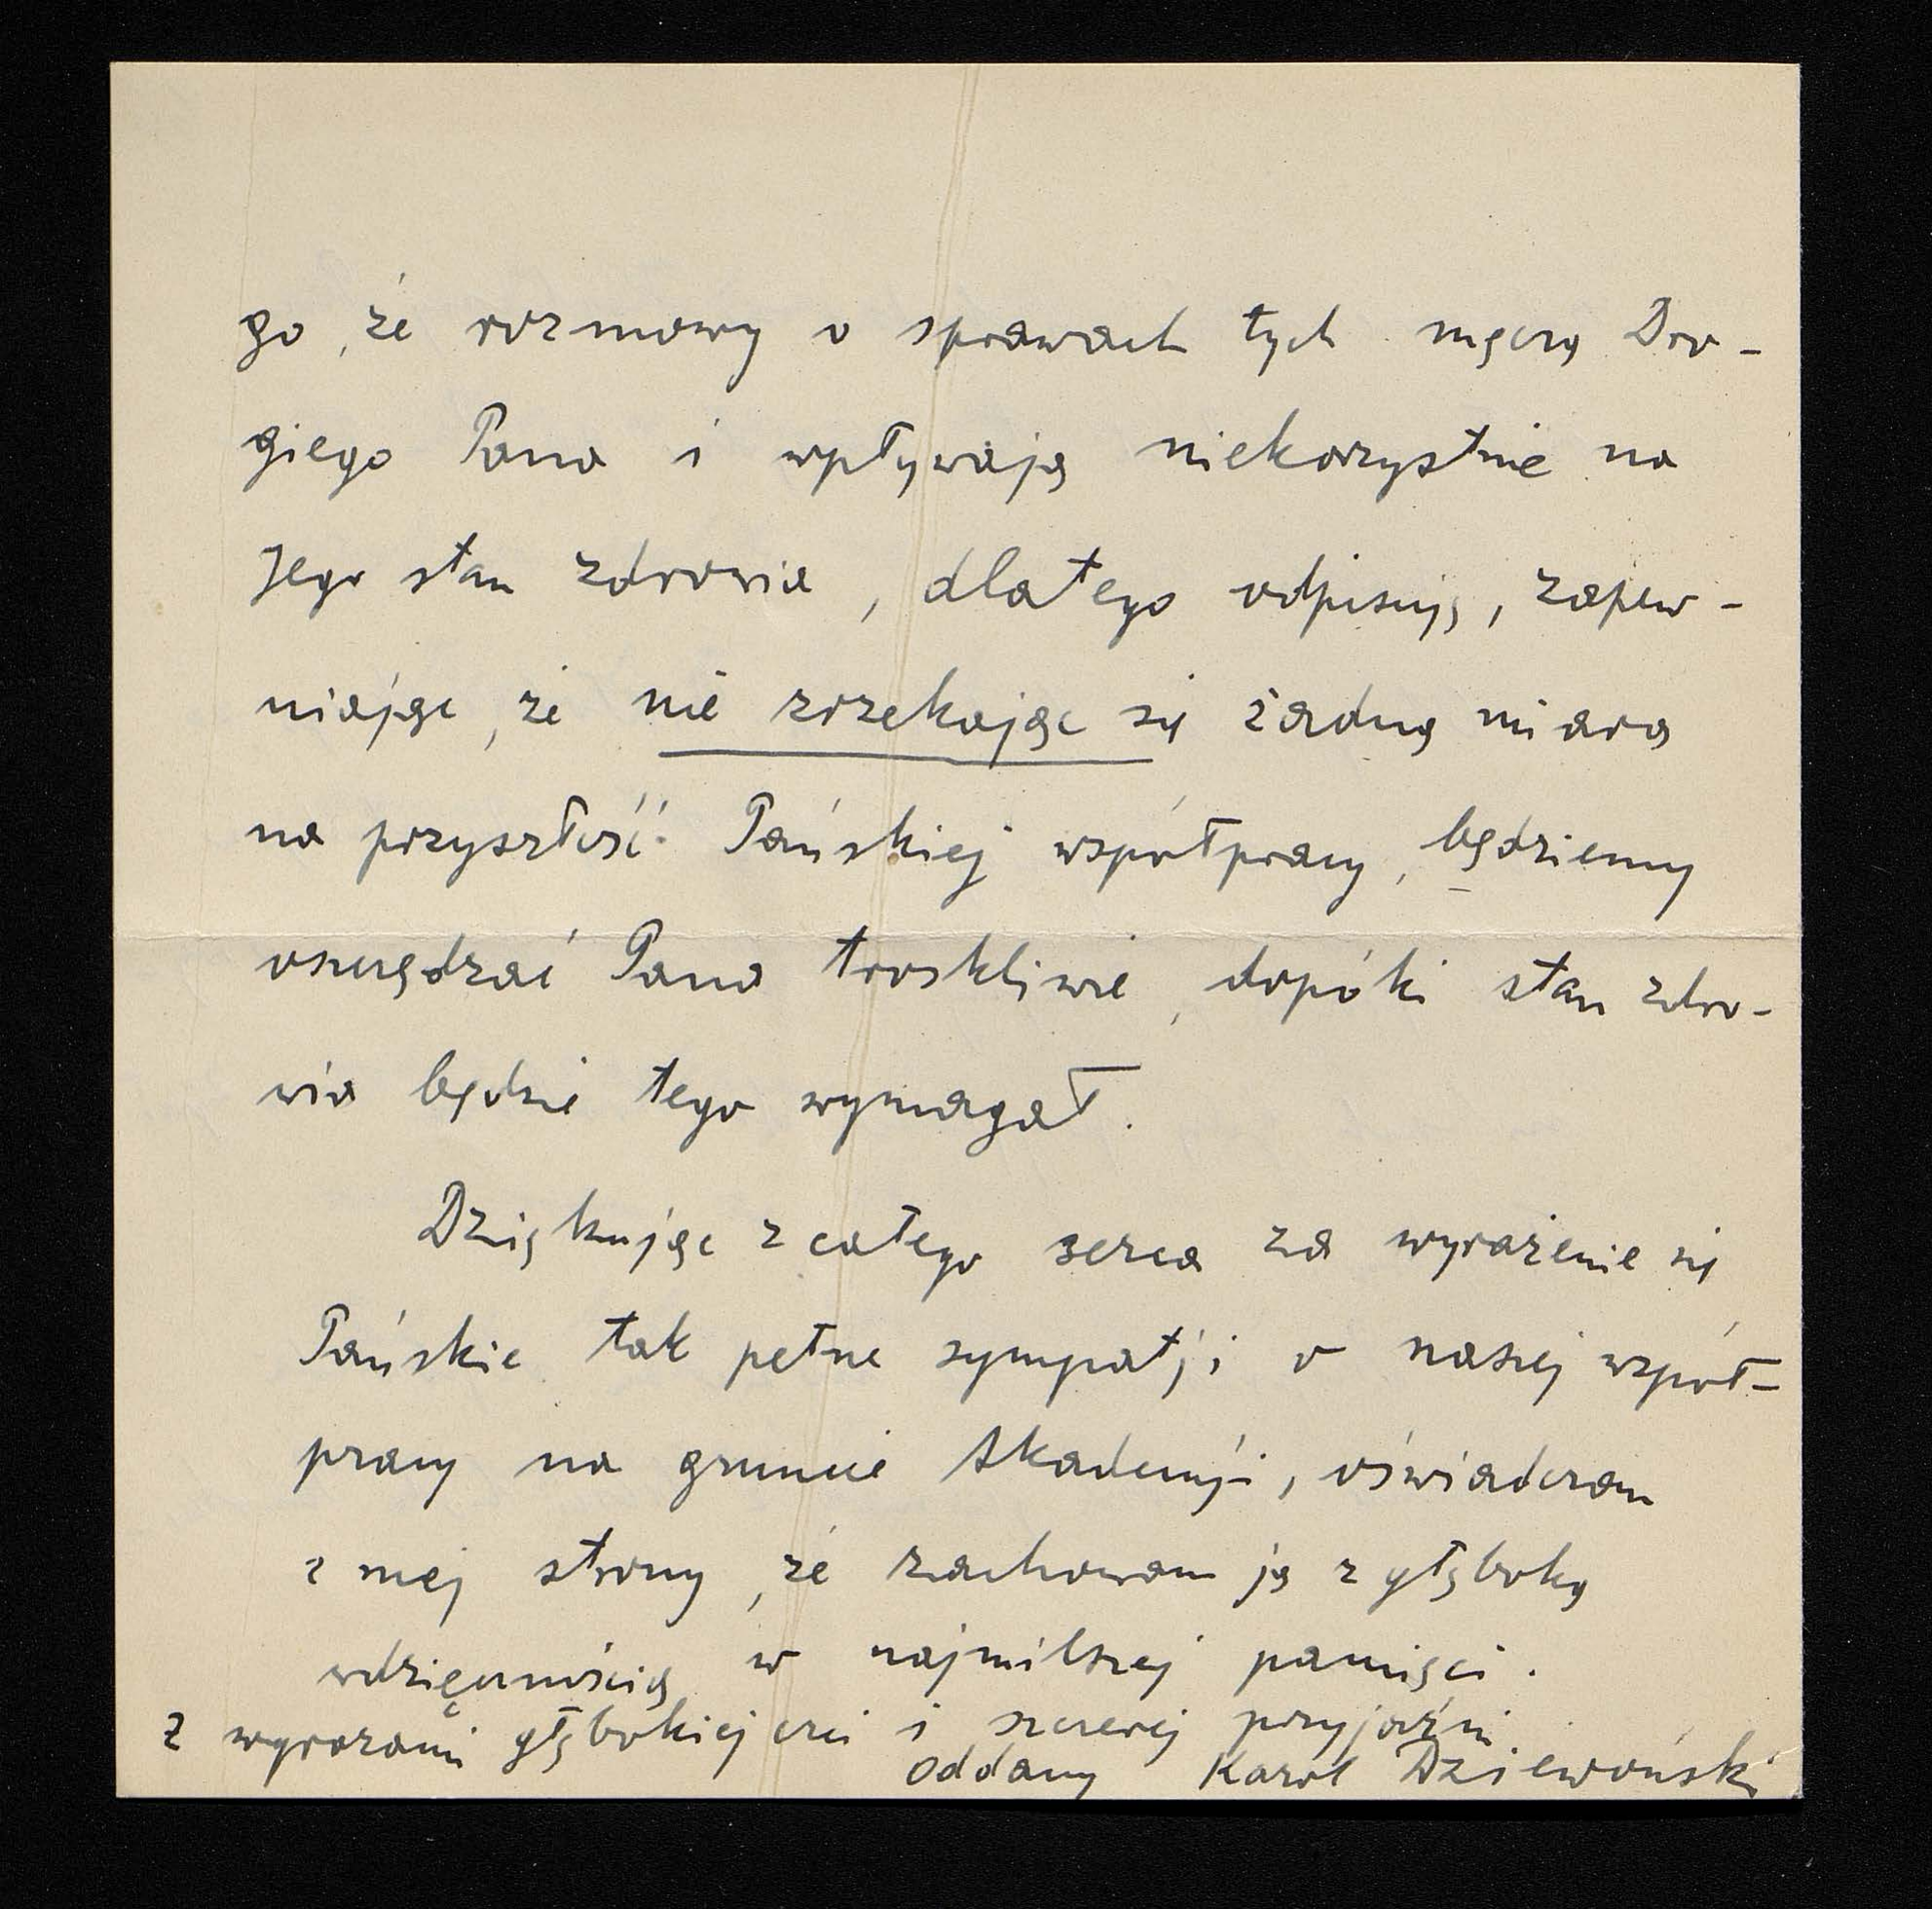 go, że rozmowy o sprawach tych męczą Dro-
giego Pana i wpływają niekorzystnie na
Jego stan zdrowia, dlatego odpisuję, zapew-
niając, że nie zrzekając się żadną miarą
na przyszłość Pańskiej współpracy, będziemy
oszczędzać Pana troskliwie, dopóki stan zdro-
wia będzie tego wymagał.
Dziękując z całego serca za wyrażenie się
Pańskie tak pełne sympatji o naszej współ-
pracy na gruncie Akademji, oświadczam
z mej strony, że zachowam ją z głęboką
wdzięcznością w najmilszej pamięci.
Z wyrazami głębokiej czci i szczerej przyjaźni
oddany Karol Dziewoński